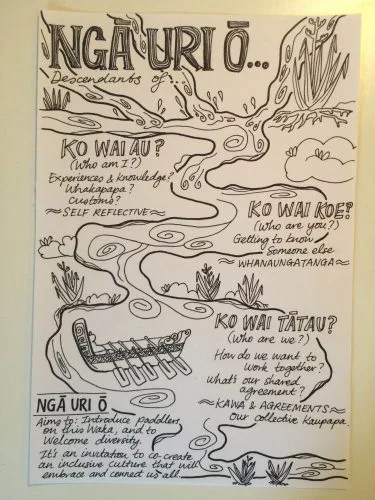 NGĀ URI Ō...
Descendants of...
KO WAI AU?
(Who am I?)
Experiences & knowledge?
Whakapapa?
Customs?
≈ SELF REFLECTIVE ≈
KO WAI KOE?
(Who are you?)
Getting to know
Someone else
≈ WHANAUNGATANGA ≈
KO WAI TĀTAU?
(Who are we?)
How do we want to
work together?
What's our shared
agreement?
≈ KAWA & AGREEMENTS ≈
Our collective Kaupapa.
NGĀ URI Ō
Aims to: Introduce paddlers
on this Waka, and to
Welcome diversity.
It's an invitation to co-create
an inclusive culture that will
embrace and connect us all.